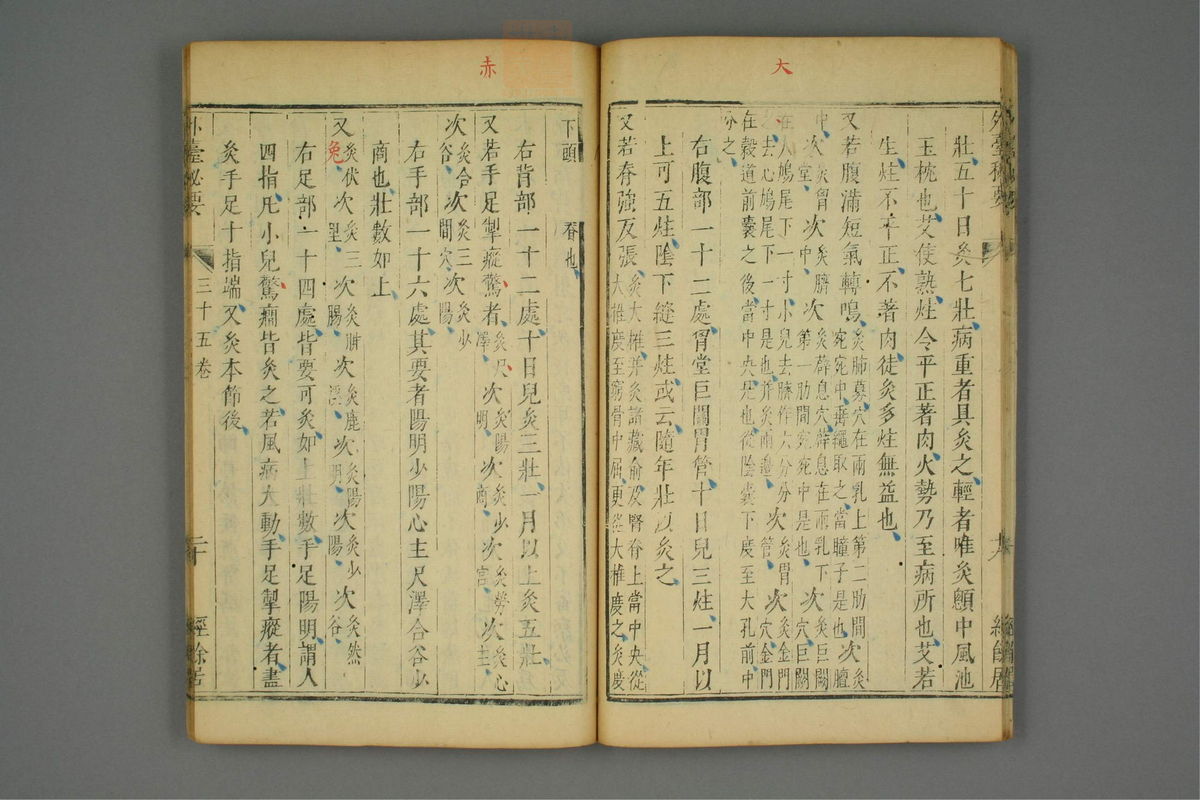 大
壯五十日灸七壯病重者具灸之輕者唯灸顖中風池
玉枕也艾使熟炷令平正著肉火勢乃至病所也艾若
生炷不平正不著肉徒灸多炷無益也
又若腹滿短氣轉鳴灸肺募穴在兩乳上第二肋間宛宛中垂繩取之當瞳子是也次灸膻
中次灸胷堂次灸臍中次灸薜息穴薜息在兩乳下第一肋間宛宛中是也次灸巨闕穴巨闕
在人鳩尾下一寸小兒去臍作六分分之去心鳩尾下一寸是也并灸兩邊次灸胃管次灸金門穴金門
在穀道前囊之後當中央是也從陰囊下度至大孔前中分之
右腹部一十二處胷堂巨闕胃管十日兒三炷一月以
上可五炷陰下縫三炷或云隨年壯以灸之
又若脊強反張灸大椎并灸諸藏俞及腎脊上當中央從大椎度至窮骨中屈更從大椎度之灸度
赤
下頭
脊也
右背部一十二處十日兒灸三壯一月以上灸五壯
又若手足掣瘲驚者灸尺澤次灸陽明次灸少商次灸勞宮次灸心主
次灸合谷次灸三間穴次灸少陽
右手部一十六處其要者陽明少陽心主尺澤合谷少
商也壯數如上
又灸伏兔次灸三里次灸腓腸次灸鹿溪次灸陽明次灸少陽次灸然谷
右足部一十四處皆要可灸如上壯數手足陽明謂人
四指凡小兒驚癇皆灸之若風病大動手足掣瘲者盡
灸手足十指端又灸本節後
外臺秘要
三十五卷
二十
經餘居